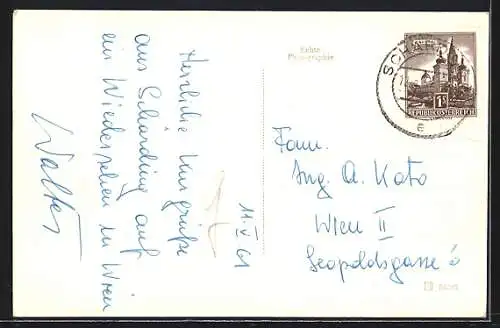 Herzliche Kurgrüße
aus Schärding auf
ein Wiedersehen in Wien
Walter
11. V 61
Echte
Photographie
SCH
e
1S
REPUBLIK ÖSTERREICH
Fam.
Ing. A. Kato
Wien II
Leopoldsgasse